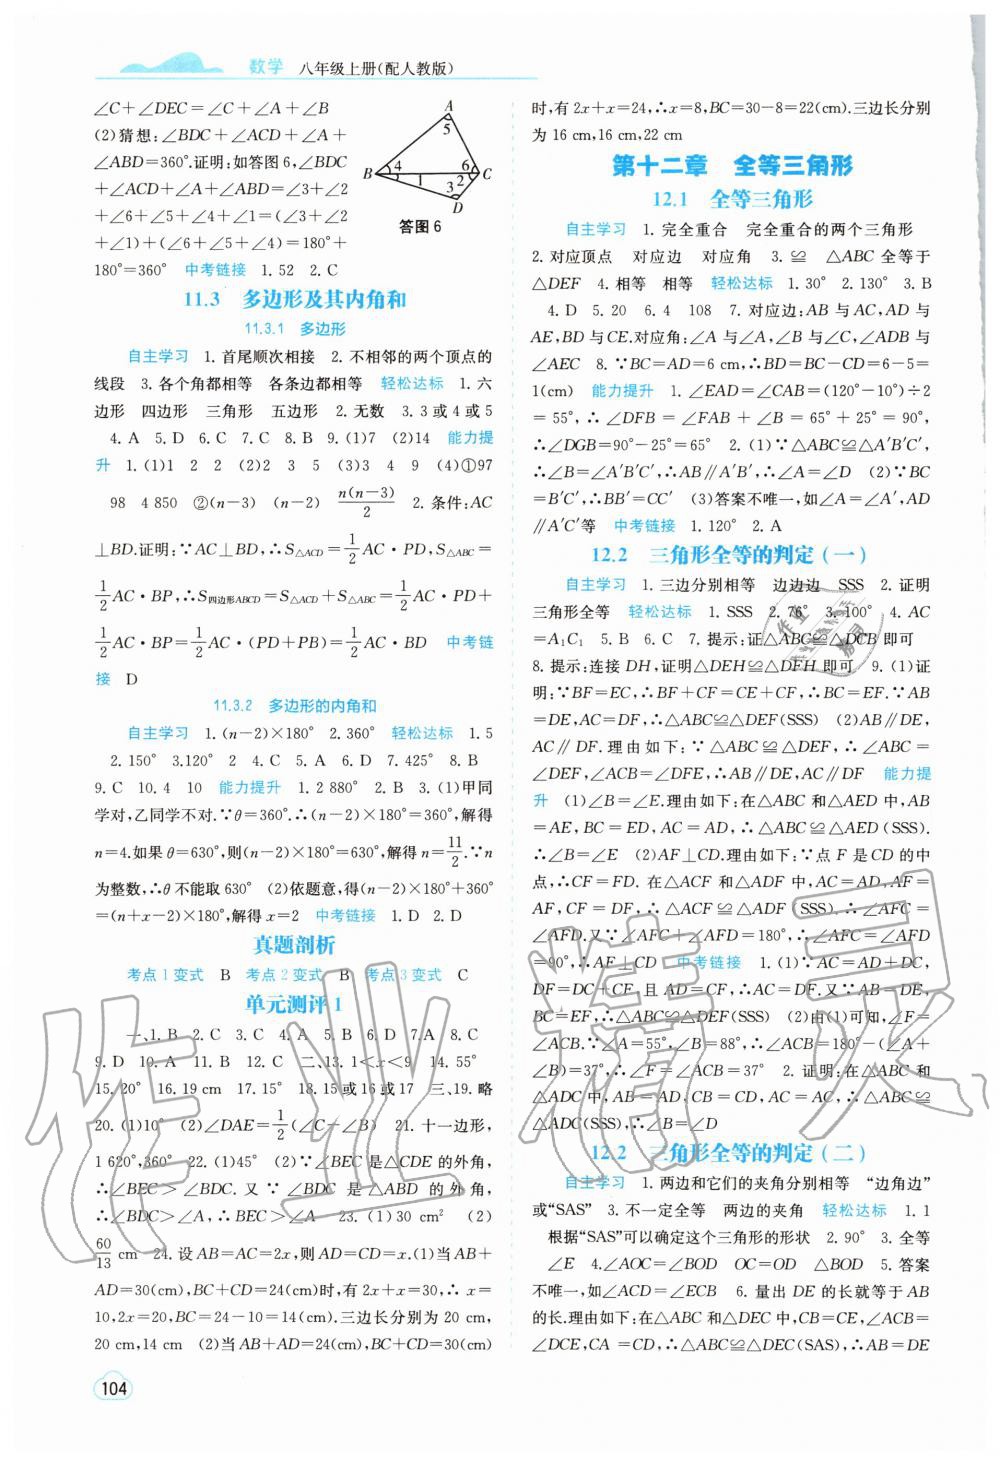 数学 八年级上册(配人教版)
∠C+∠DEC=∠C+∠A+∠B
(2)猜想:∠BDC+∠ACD+∠A+
∠ABD=360°.证明:如答图6,∠BDC
+∠ACD+∠A+∠ABD=∠3+∠2
+∠6+∠5+∠4+∠1=(∠3+∠2
+∠1)+(∠6+∠5+∠4)=180°+
180°=360° 中考链接 1.52 2.C
A
5
B 4 6 C
1 2
3
D
答图6
11.3 多边形及其内角和
11.3.1 多边形
自主学习 1.首尾顺次相接 2.不相邻的两个顶点的
线段 3.各个角都相等 各条边都相等 轻松达标 1.六
边形 四边形 三角形 五边形 2.无数 3.3或4或5
4.A 5.D 6.C 7.C 8.B 9.(1)7 (2)14 能力提
升 1.(1)1 2 2 (2)2 3 5 (3)3 4 9 (4)①97
98 4 850 ②(n-3) (n-2) n(n-3)/2 2.条件:AC
⊥BD.证明:∵AC⊥BD,∴S△ACD=1/2AC·PD,S△ABC=
1/2AC·BP,∴S四边形ABCD=S△ACD+S△ABC=1/2AC·PD+
1/2AC·BP=1/2AC·(PD+PB)=1/2AC·BD 中考链
接 D
11.3.2 多边形的内角和
自主学习 1.(n-2)×180° 2.360° 轻松达标 1.5
2.150° 3.120° 2 4.C 5.A 6.D 7.425° 8.B
9.C 10.4 10 能力提升 1.2 880° 2.B 3.(1)甲同
学对,乙同学不对.∵θ=360°.∴(n-2)×180°=360°,解得
n=4.如果θ=630°,则(n-2)×180°=630°,解得n=11/2.∵n
为整数,∴θ不能取630° (2)依题意,得(n-2)×180°+360°
=(n+x-2)×180°,解得x=2 中考链接 1.D 2.D
真题剖析
考点1变式 B 考点2变式 B 考点3变式 C
单元测评1
一、1.B 2.C 3.C 4.A 5.B 6.D 7.A 8.C
9.D 10.A 11.B 12.C 二、13.1<x<9 14.55°
15.20° 16.19 cm 17.15° 18.15或16或17 三、19.略
20.(1)10° (2)∠DAE=1/2(∠C-∠B) 21.十一边形,
1 620°,360° 22.(1)45° (2)∵∠BEC是△CDE的外角,
∴∠BEC>∠BDC.又∵∠BDC是△ABD的外角,
∴∠BDC>∠A,∴∠BEC>∠A 23.(1)30 cm² (2)
60/13 cm 24.设AB=AC=2x,则AD=CD=x.(1)当AB+
AD=30(cm),BC+CD=24(cm)时,有2x+x=30,∴x=
10,2x=20,BC=24-10=14(cm).三边长分别为20 cm,
20 cm,14 cm (2)当AB+AD=24(cm),BC+CD=30(cm)
时,有2x+x=24,∴x=8,BC=30-8=22(cm).三边长分别
为16 cm,16 cm,22 cm
第十二章 全等三角形
12.1 全等三角形
自主学习 1.完全重合 完全重合的两个三角形
2.对应顶点 对应边 对应角 3.≌ △ABC全等于
△DEF 4.相等 相等 轻松达标 1.30° 2.130° 3.B
4.D 5.20 6.4 108 7.对应边:AB与AC,AD与
AE,BD与CE.对应角:∠A与∠A,∠B与∠C,∠ADB与
∠AEC 8.∵BC=AD=6 cm,∴BD=BC-CD=6-5=
1(cm) 能力提升 1.∠EAD=∠CAB=(120°-10°)÷2
=55°,∴∠DFB=∠FAB+∠B=65°+25°=90°,
∴∠DGB=90°-25°=65° 2.(1)∵△ABC≌△A′B′C′,
∴∠B=∠A′B′C′,∴AB∥A′B′,∴∠A=∠D (2)∵BC
=B′C′,∴BB′=CC′ (3)答案不唯一,如∠A=∠A′,AD
∥A′C′等 中考链接 1.120° 2.A
12.2 三角形全等的判定(一)
自主学习 1.三边分别相等 边边边 SSS 2.证明
三角形全等 轻松达标 1.SSS 2.76° 3.100° 4.AC
=A₁C₁ 5.B 6.C 7.提示:证△ABC≌△DCB即可
8.提示:连接DH,证明△DEH≌△DFH即可 9.(1)证
明:∵BF=EC,∴BF+CF=CE+CF,∴BC=EF.∵AB
=DE,AC=DF,∴△ABC≌△DEF(SSS) (2)AB∥DE,
AC∥DF.理由如下:∵△ABC≌△DEF,∴∠ABC=
∠DEF,∠ACB=∠DFE,∴AB∥DE,AC∥DF 能力提
升 (1)∠B=∠E.理由如下:在△ABC和△AED中,AB
=AE,BC=ED,AC=AD,∴△ABC≌△AED(SSS).
∴∠B=∠E (2)AF⊥CD.理由如下:∵点F是CD的中
点,∴CF=FD.在△ACF和△ADF中,AC=AD,AF=
AF,CF=DF,∴△ACF≌△ADF(SSS).∴∠AFC=
∠AFD.又∵∠AFC+∠AFD=180°,∴∠AFC=∠AFD
=90°,∴AF⊥CD 中考链接 1.(1)∵AC=AD+DC,
DF=DC+CF,且AD=CF,∴AC=DF.又∵AB=DE,
BC=EF,∴△ABC≌△DEF(SSS) (2)由(1)可知,∠F=
∠ACB.∵∠A=55°,∠B=88°,∴∠ACB=180°-(∠A+
∠B)=37°,∴∠F=∠ACB=37° 2.证明:在△ABC和
△ADC中,AB=AD,CB=CD,AC=AC,∴△ABC≌
△ADC(SSS),∴∠B=∠D
12.2 三角形全等的判定(二)
自主学习 1.两边和它们的夹角分别相等 “边角边”
或“SAS” 3.不一定全等 两边的夹角 轻松达标 1.1
根据“SAS”可以确定这个三角形的形状 2.90° 3.全等
∠E 4.∠AOC=∠BOD OC=OD △BOD 5.答案
不唯一,如∠ACD=∠ECB 6.量出DE的长就等于AB
的长.理由如下:在△ABC和△DEC中,CB=CE,∠ACB=
∠DCE,CA=CD,∴△ABC≌△DEC(SAS),∴AB=DE
104
作业精灵